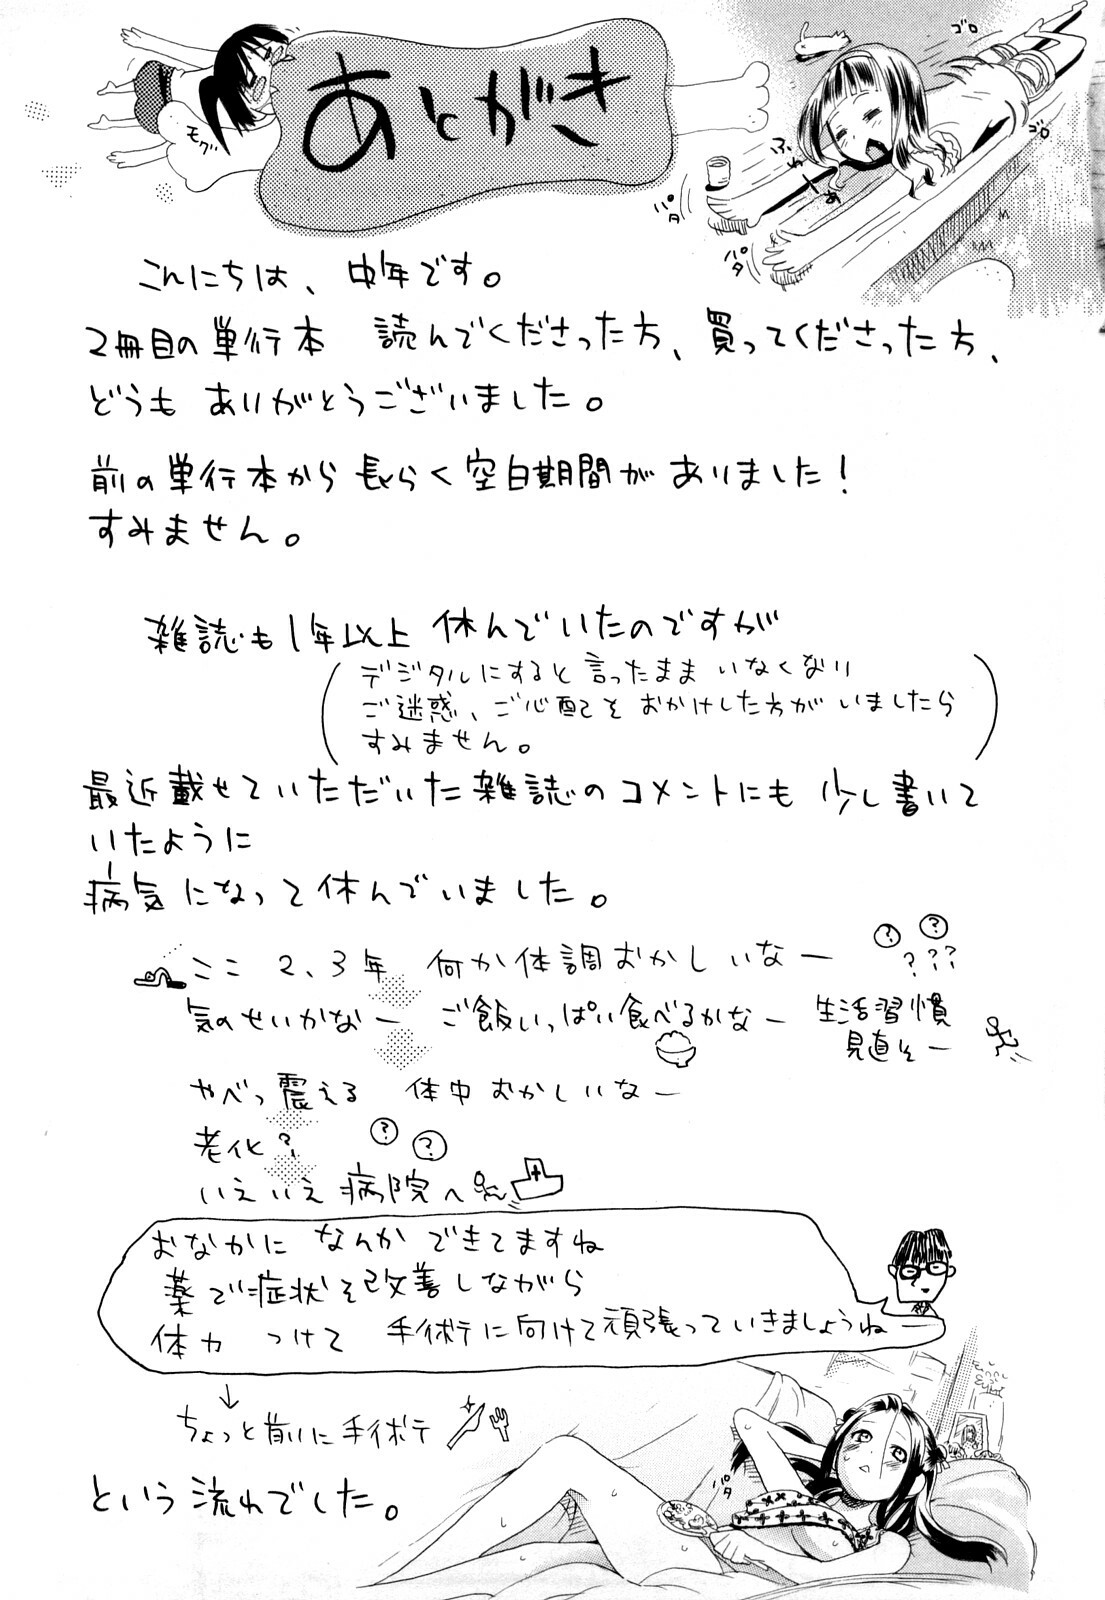 あとがき
モグ
ゴロ
ゴロ
ふわーぁ
パタ
パタ
こんにちは、中年です。
2冊目の単行本 読んでくださった方、買ってくださった方、
どうも ありがとうございました。
前の単行本から長らく空白期間がありました!
すみません。
雑誌も1年以上 休んでいたのですが
デジタルにすると言ったまま いなくなり
ご迷惑、ご心配を おかけした方が いましたら
すみません。
最近載せていただいた雑誌のコメントにも 少し書いて
いたように
病気になって休んでいました。
ここ 2、3年 何か体調おかしいなー ? ? ? ? ?
気のせいかなー ご飯いっぱい食べるかなー 生活習慣
見直そー
やべっ震える 体中おかしいなー
老化? ? ?
いえいえ病院へ
おなかに なんか できてますね
薬で症状を改善しながら
体力 つけて 手術に向けて頑張っていきましょうねー
↓
ちょっと前に手術
パタ
という流れでした。